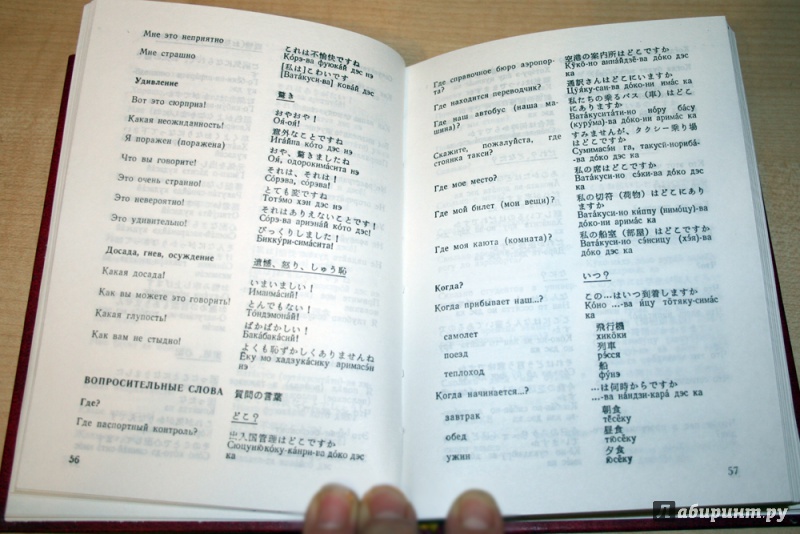 Мне это неприятно
これは不愉快ですね
Корэ-ва фуюка́й дэс нэ
Мне страшно
[私は]こわいです
[Вата́куси-ва] кова́й дэс
Удивление
驚き
Вот это сюрприз!
おやおや！
Оя́-оя́!
Какая неожиданность!
意外なことですね
Ига́йна ко́то дэс нэ
Я поражен (поражена)
おや、驚きましたね
Оя́, одорокима́сита нэ
Что вы говорите!
それは、それは！
Со́рэва, со́рэва!
Это очень странно!
とても変ですね
Тотэ́мо хэн дэс нэ
Это невероятно!
それはありえないことです！
Со́рэ-ва ариэна́й ко́то дэс!
Это удивительно!
びっくりしました！
Бикку́ри-сима́сита!
Досада, гнев, осуждение
遺憾、怒り、しゅう恥
Какая досада!
いまいましい！
Имаима́сий!
Как вы можете это говорить!
とんでもない！
То́ндэмона́й!
Какая глупость!
ばかばかしい！
Бака́бака́сий!
Как вам не стыдно!
よくも恥ずかしくありませんね
Ёку мо хадзука́сику аримасэ́н
нэ
ВОПРОСИТЕЛЬНЫЕ СЛОВА
質問の言葉
Где?
どこ？
Где паспортный контроль?
出入国管理はどこですか
Сюцуню́коку-ка́нри-ва до́ко дэс
ка
56
Где справочное бюро аэропор-
та?
空港の案内所はどこですか
Ку́ко-но анна́йдзё-ва до́ко дэс
ка
Где находится переводчик?
通訳さんはどこにいますか
Цу́яку-сан-ва до́ко-ни има́с ка
Где наш автобус (наша ма-
шина)?
私たちの乗るバス（車）はどこ
にありますか
Вата́куситати-но но́ру ба́су
(куру́ма)-ва до́ко-ни арима́с ка
Скажите, пожалуйста, где
стоянка такси?
すみませんが、タクシー乗り場
はどこですか
Сумимасэ́н га, такусӣ-нориба́-
ва до́ко дэс ка
Где мое место?
私の席はどこですか
Вата́куси-но сэ́ки-ва до́ко дэс
ка
Где мой билет (мои вещи)?
私の切符（荷物）はどこにあり
ますか
Вата́куси-но киппу (нимо́цу)-ва
до́ко-ни арима́с ка
Где моя каюта (комната)?
私の船室（部屋）はどこですか
Вата́куси-но сэ́нсицу (хэя́)-ва
до́ко дэс ка
Когда?
いつ？
Когда прибывает наш...?
この…はいつ到着しますか
Ко́но ...-ва и́цу то́тяку-сима́с
ка
самолет
飛行機
хико́ки
поезд
列車
рэ́сся
теплоход
船
фу́нэ
Когда начинается...?
…は何時からですか
...-ва на́ндзи-кара́ дэс ка
завтрак
朝食
тё̄сёку
обед
昼食
тю̄сёку
ужин
夕食
ю̄сёку
57
Лабиринт.ру